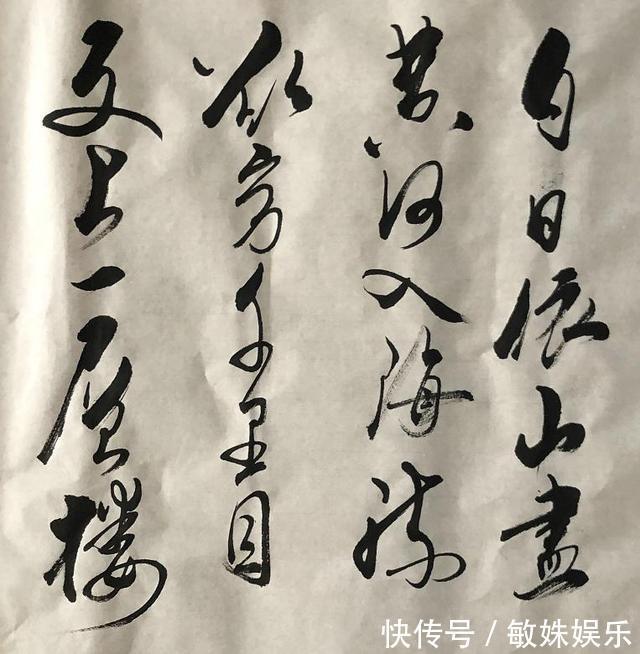 白日依山盡
黄河入海流
欲穷千里目
更上一層樓
快传号 / 敏姝娱乐